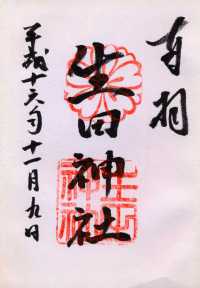 奉拝
生田神社
平成十六年十一月九日
生田神社